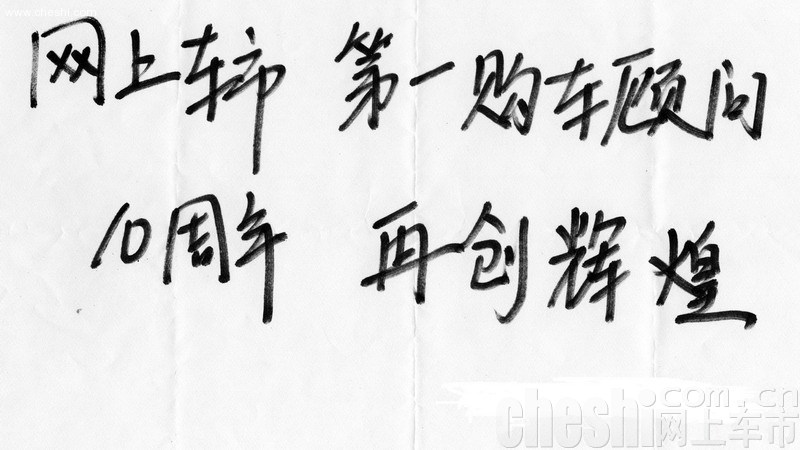 www.cheshi.com
网上车市 第一购车顾问
10周年 再创辉煌
cheshi.com.cn
网上车市